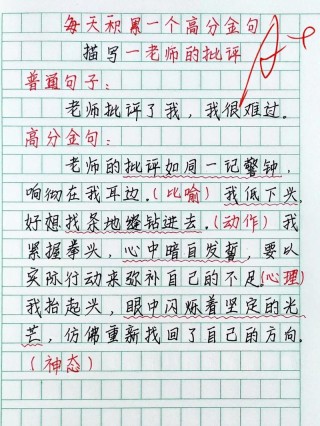 每天积累一个高分金句
描写一老师的批评
A+
普通句子:
老师批评了我,我很难过。
高分金句:
老师的批评如同一记警钟,
响彻在我耳边。(比喻)我低下头,
好想找条地缝钻进去。(动作)我
紧握拳头,心中暗自发誓,要以
实际行动来弥补自己的不足。(心理)
我抬起头,眼中闪烁着坚定的光
芒,仿佛重新找回了自己的方向。
(神态)